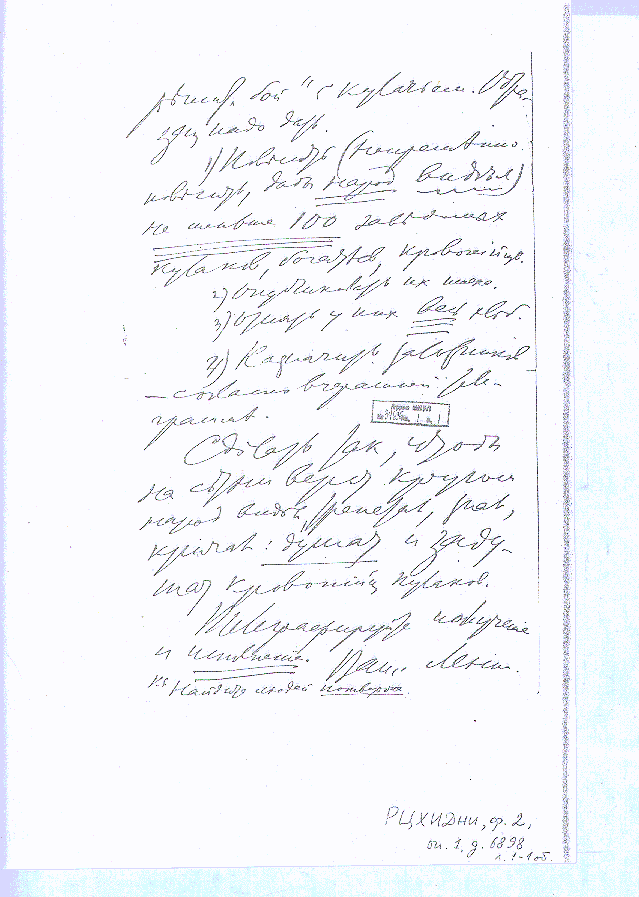 решит. бой" с кулачьем. Обра-
зец надо дать.
1) Повесить (непременно
повесить, дабы народ видел)
не меньше 100 заведомых
кулаков, богатеев, кровопийц.
2) Опубликовать их имена.
3) Отнять у них весь хлеб.
4) Назначить заложников
— согласно вчерашней теле-
грамме.
Сделать так, чтобы
на сотни верст кругом
народ видел, трепетал, знал,
кричал: душат и заду-
шат кровопийц кулаков.
Телеграфируйте получение
и исполнение. Ваш Ленин.
Ps Найдите людей потверже.
РЦХИДНИ, ф. 2,
оп. 1, д. 6898
л. 1-1 об.